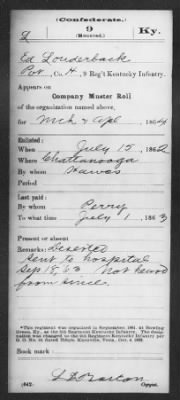 (Confederate.)
L 9 Ky.
(Mounted.)
Ed Louderback
Pvt, Co. H, 9 Reg't Kentucky Infantry.
Appears on
Company Muster Roll
of the organization named above,
for Mch & Apl, 1864
Enlisted:
When July 15, 1862
Where Chattanooga
By whom Hawes
Period
Last paid:
By whom Perry
To what time July 1, 1863
Present or absent
Remarks: Deserted
Sent to hospital
Sep 18, 63 Not heard
from since.
*This regiment was organized in September, 1861, at Bowling
Green, Ky., as the 5th Regiment Kentucky Infantry. The
changed to the 9th Regiment Kentucky Infantry
Book mark:
(642) L D Barton
Copyist.